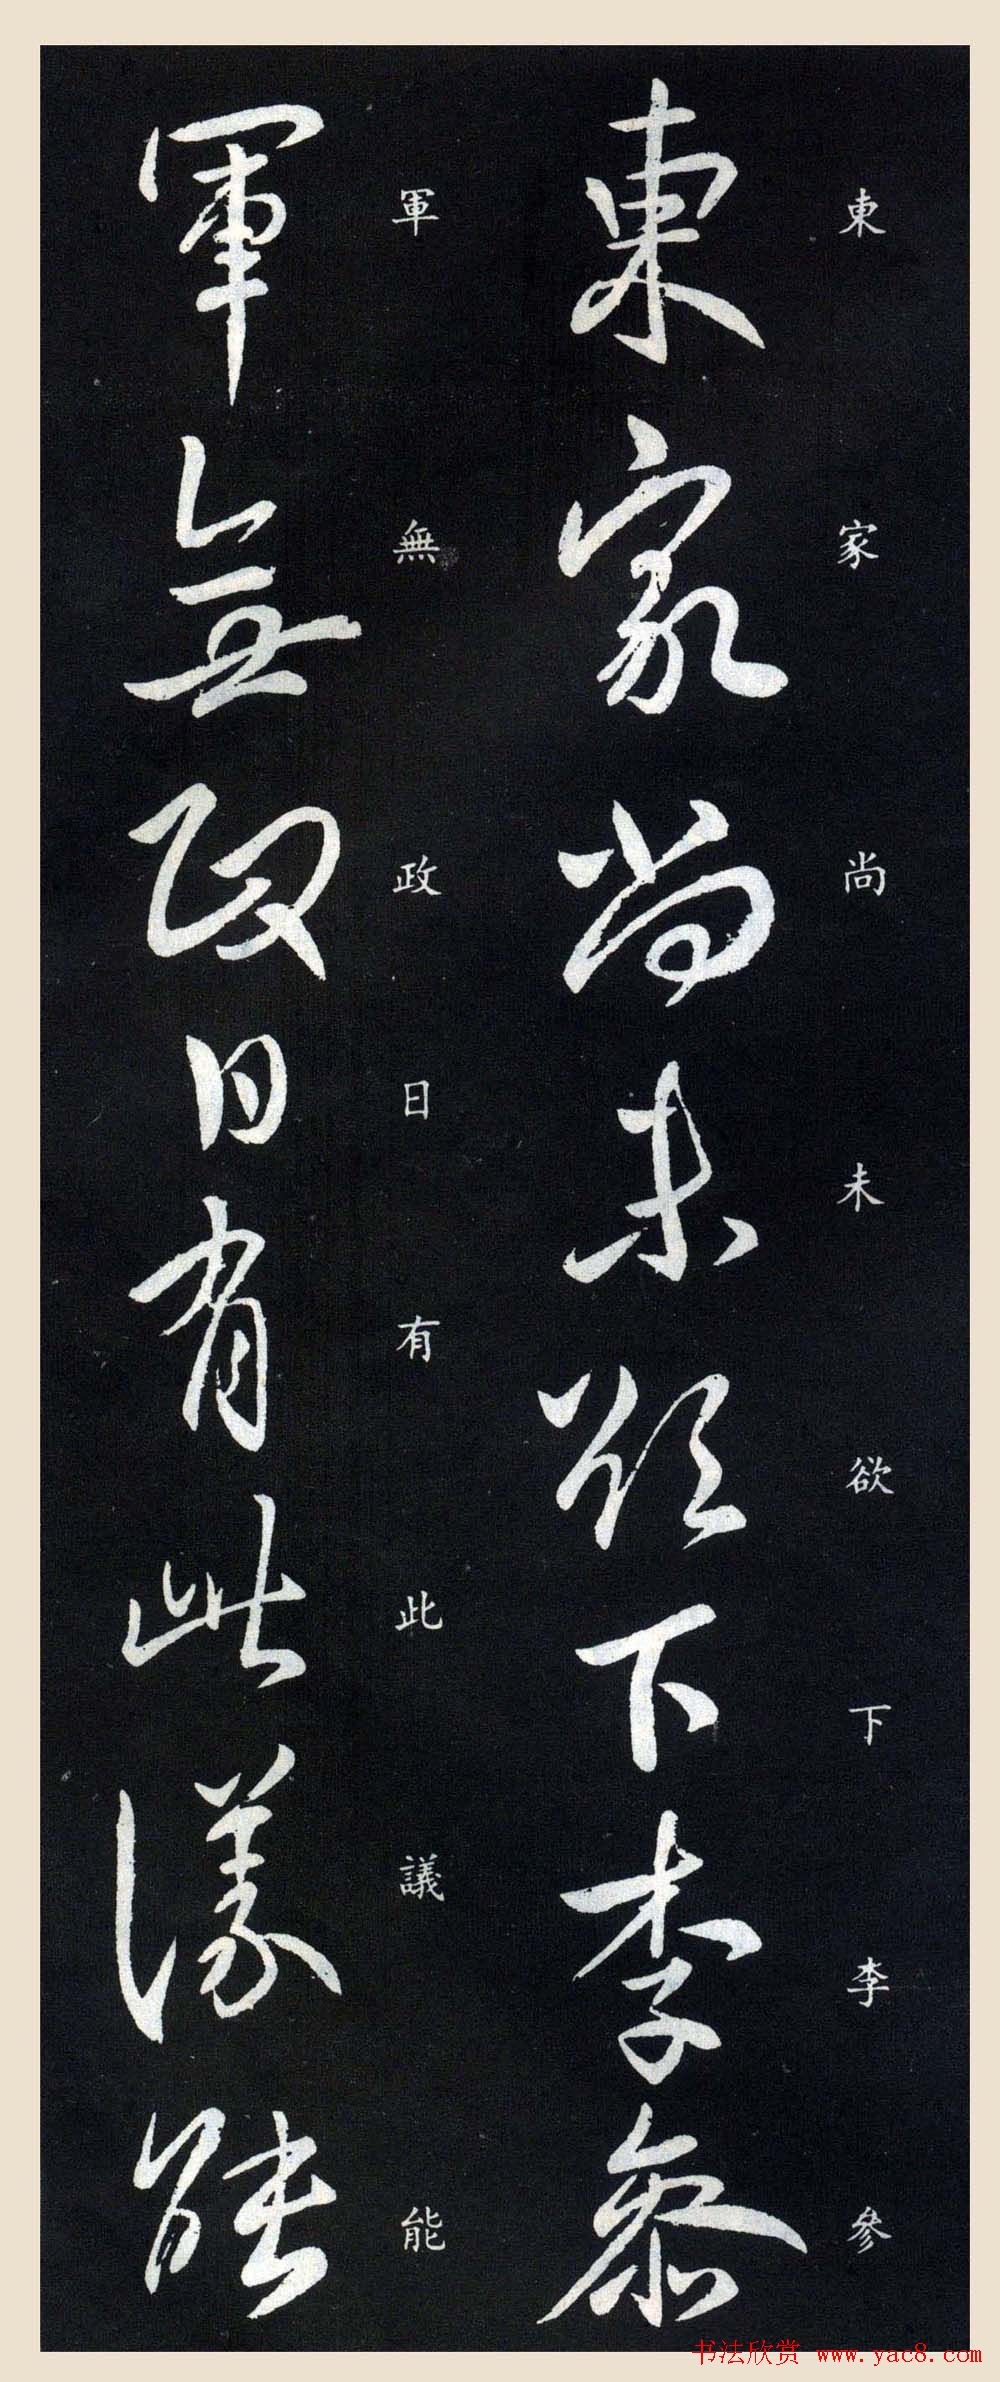 東家尚未欲下李參
東家尚未欲下李參
軍無政日有此議能
軍無政日有此議能
书法欣赏 www.yac8.com